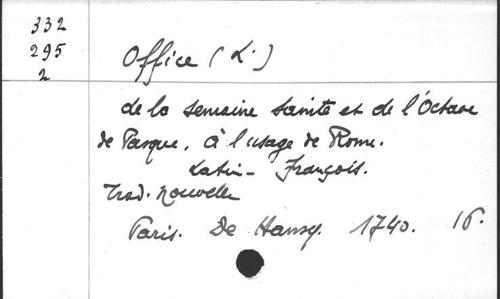 332
295
2
Office (L')
de la semaine sainte et de l'Octave
de Pasque, à l'usage de Rome.
Latin-François.
Trad. nouvelle
Paris. De Hansy. 1740. 16°.